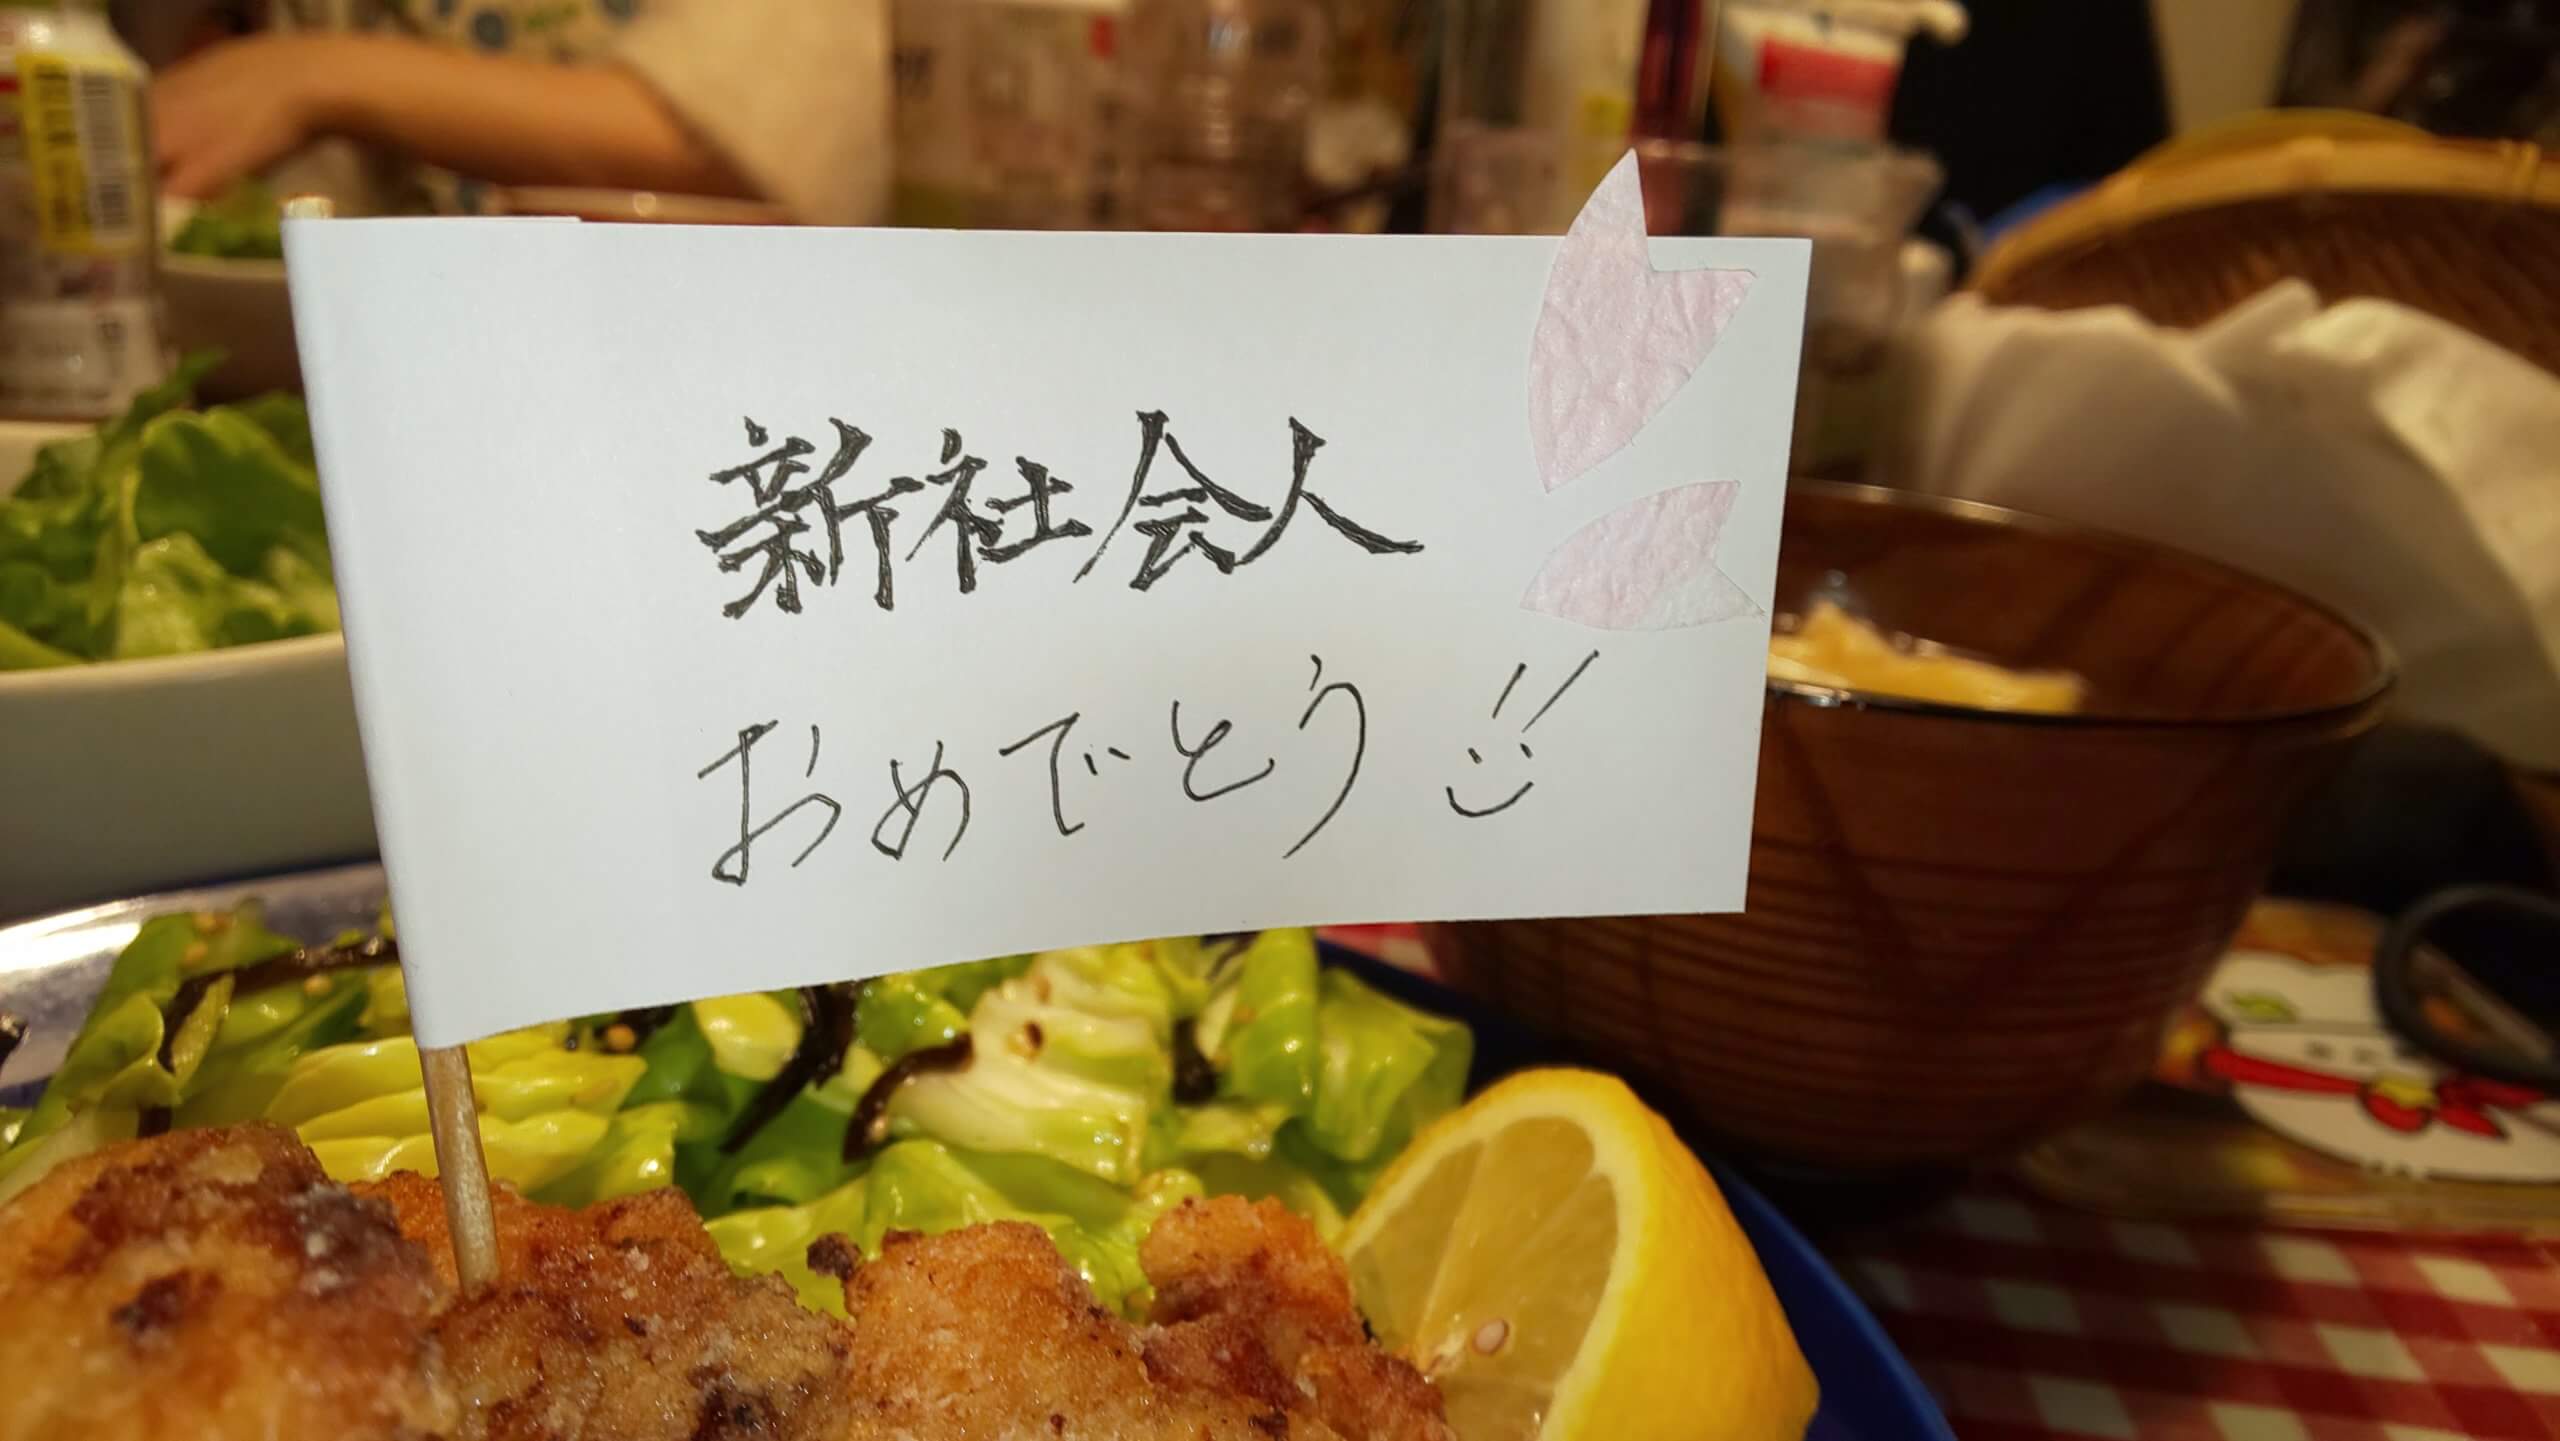 新社会人
おめでとう